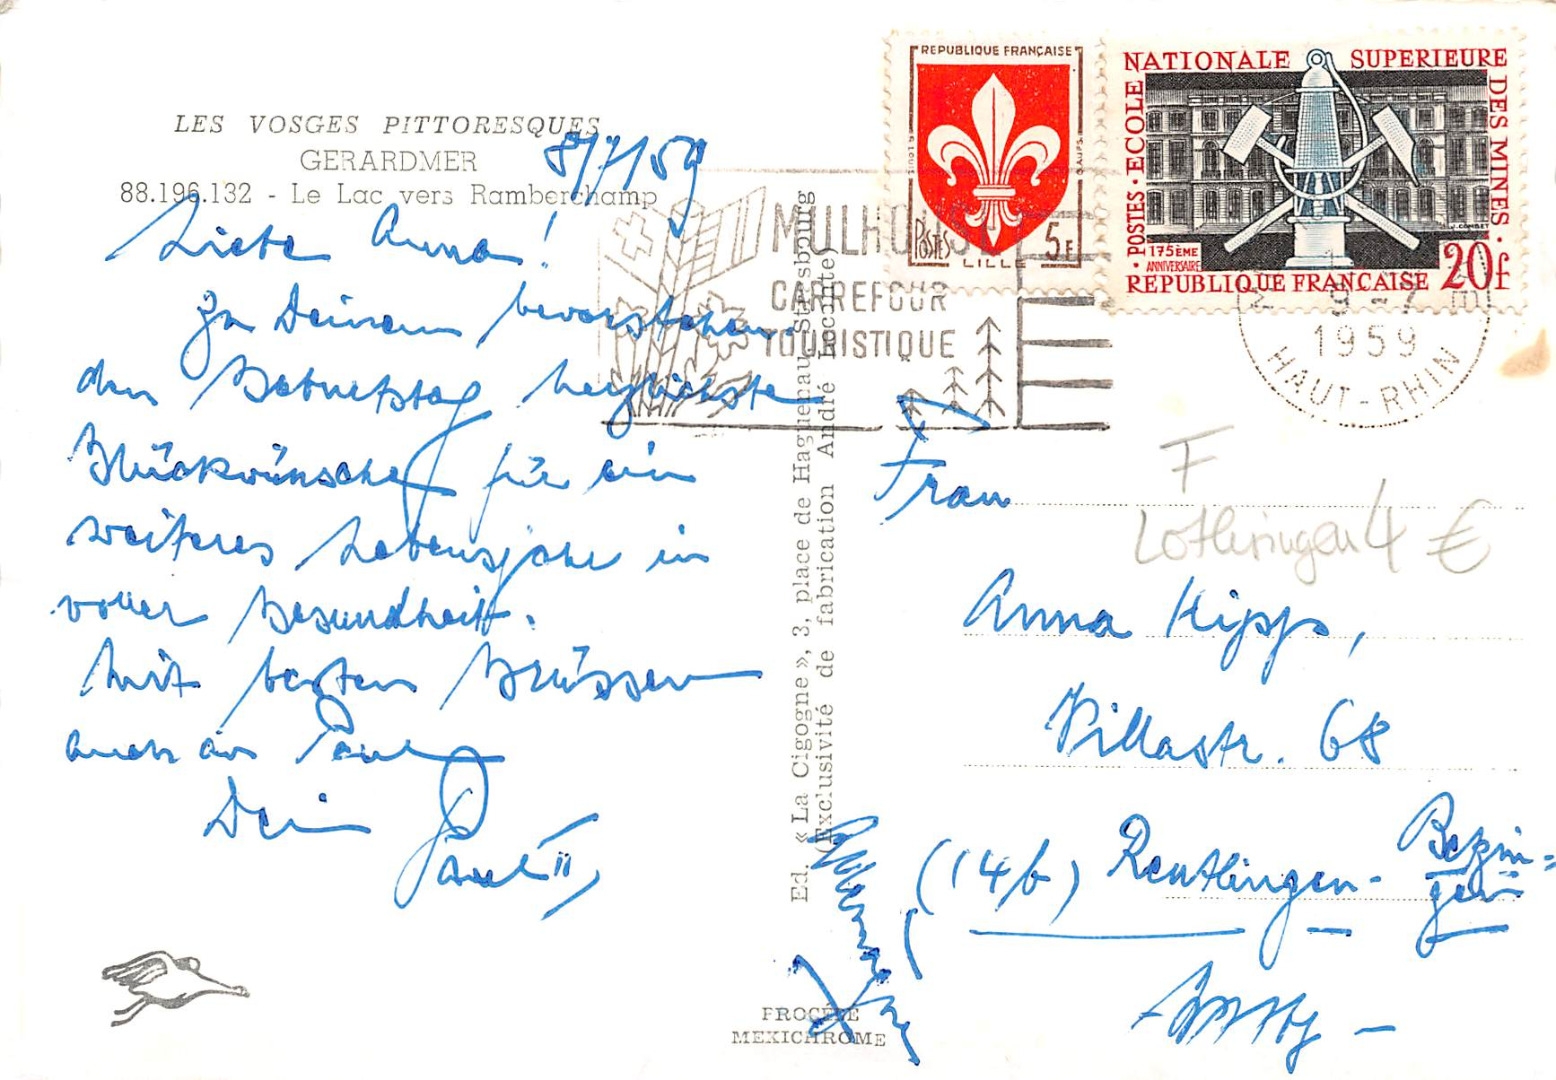 LES VOSGES PITTORESQUES
GERARDMER
88.196.132 - Le Lac vers Ramberchamp
8/7/59
Liebe Anna!
Zu Deinem bevorstehen-
den Geburtstag herzlichste
Glückwünsche für ein
weiteres Lebensjahr in
voller Gesundheit.
Mit besten Grüssen
auch an Paul
Dein
Paul
Ed. «La Cigogne», 3, place de Haguenau, Strasbourg
(Exclusivité de fabrication André Leconte)
PROCÉDÉ
MEXICHROME
REPUBLIQUE FRANÇAISE
POSTES
LILLE
5F
ECOLE NATIONALE SUPERIEURE DES MINES
POSTES
175ÈME
ANNIVERSAIRE
J. COMBET
REPUBLIQUE FRANÇAISE 20f
MULHOUSE
CARREFOUR
TOURISTIQUE
1959
HAUT-RHIN
F
Lothringen 4 €
Frau
Anna Kipp,
Villastr. 68
(14b) Reutlingen-
Betzin=
gen